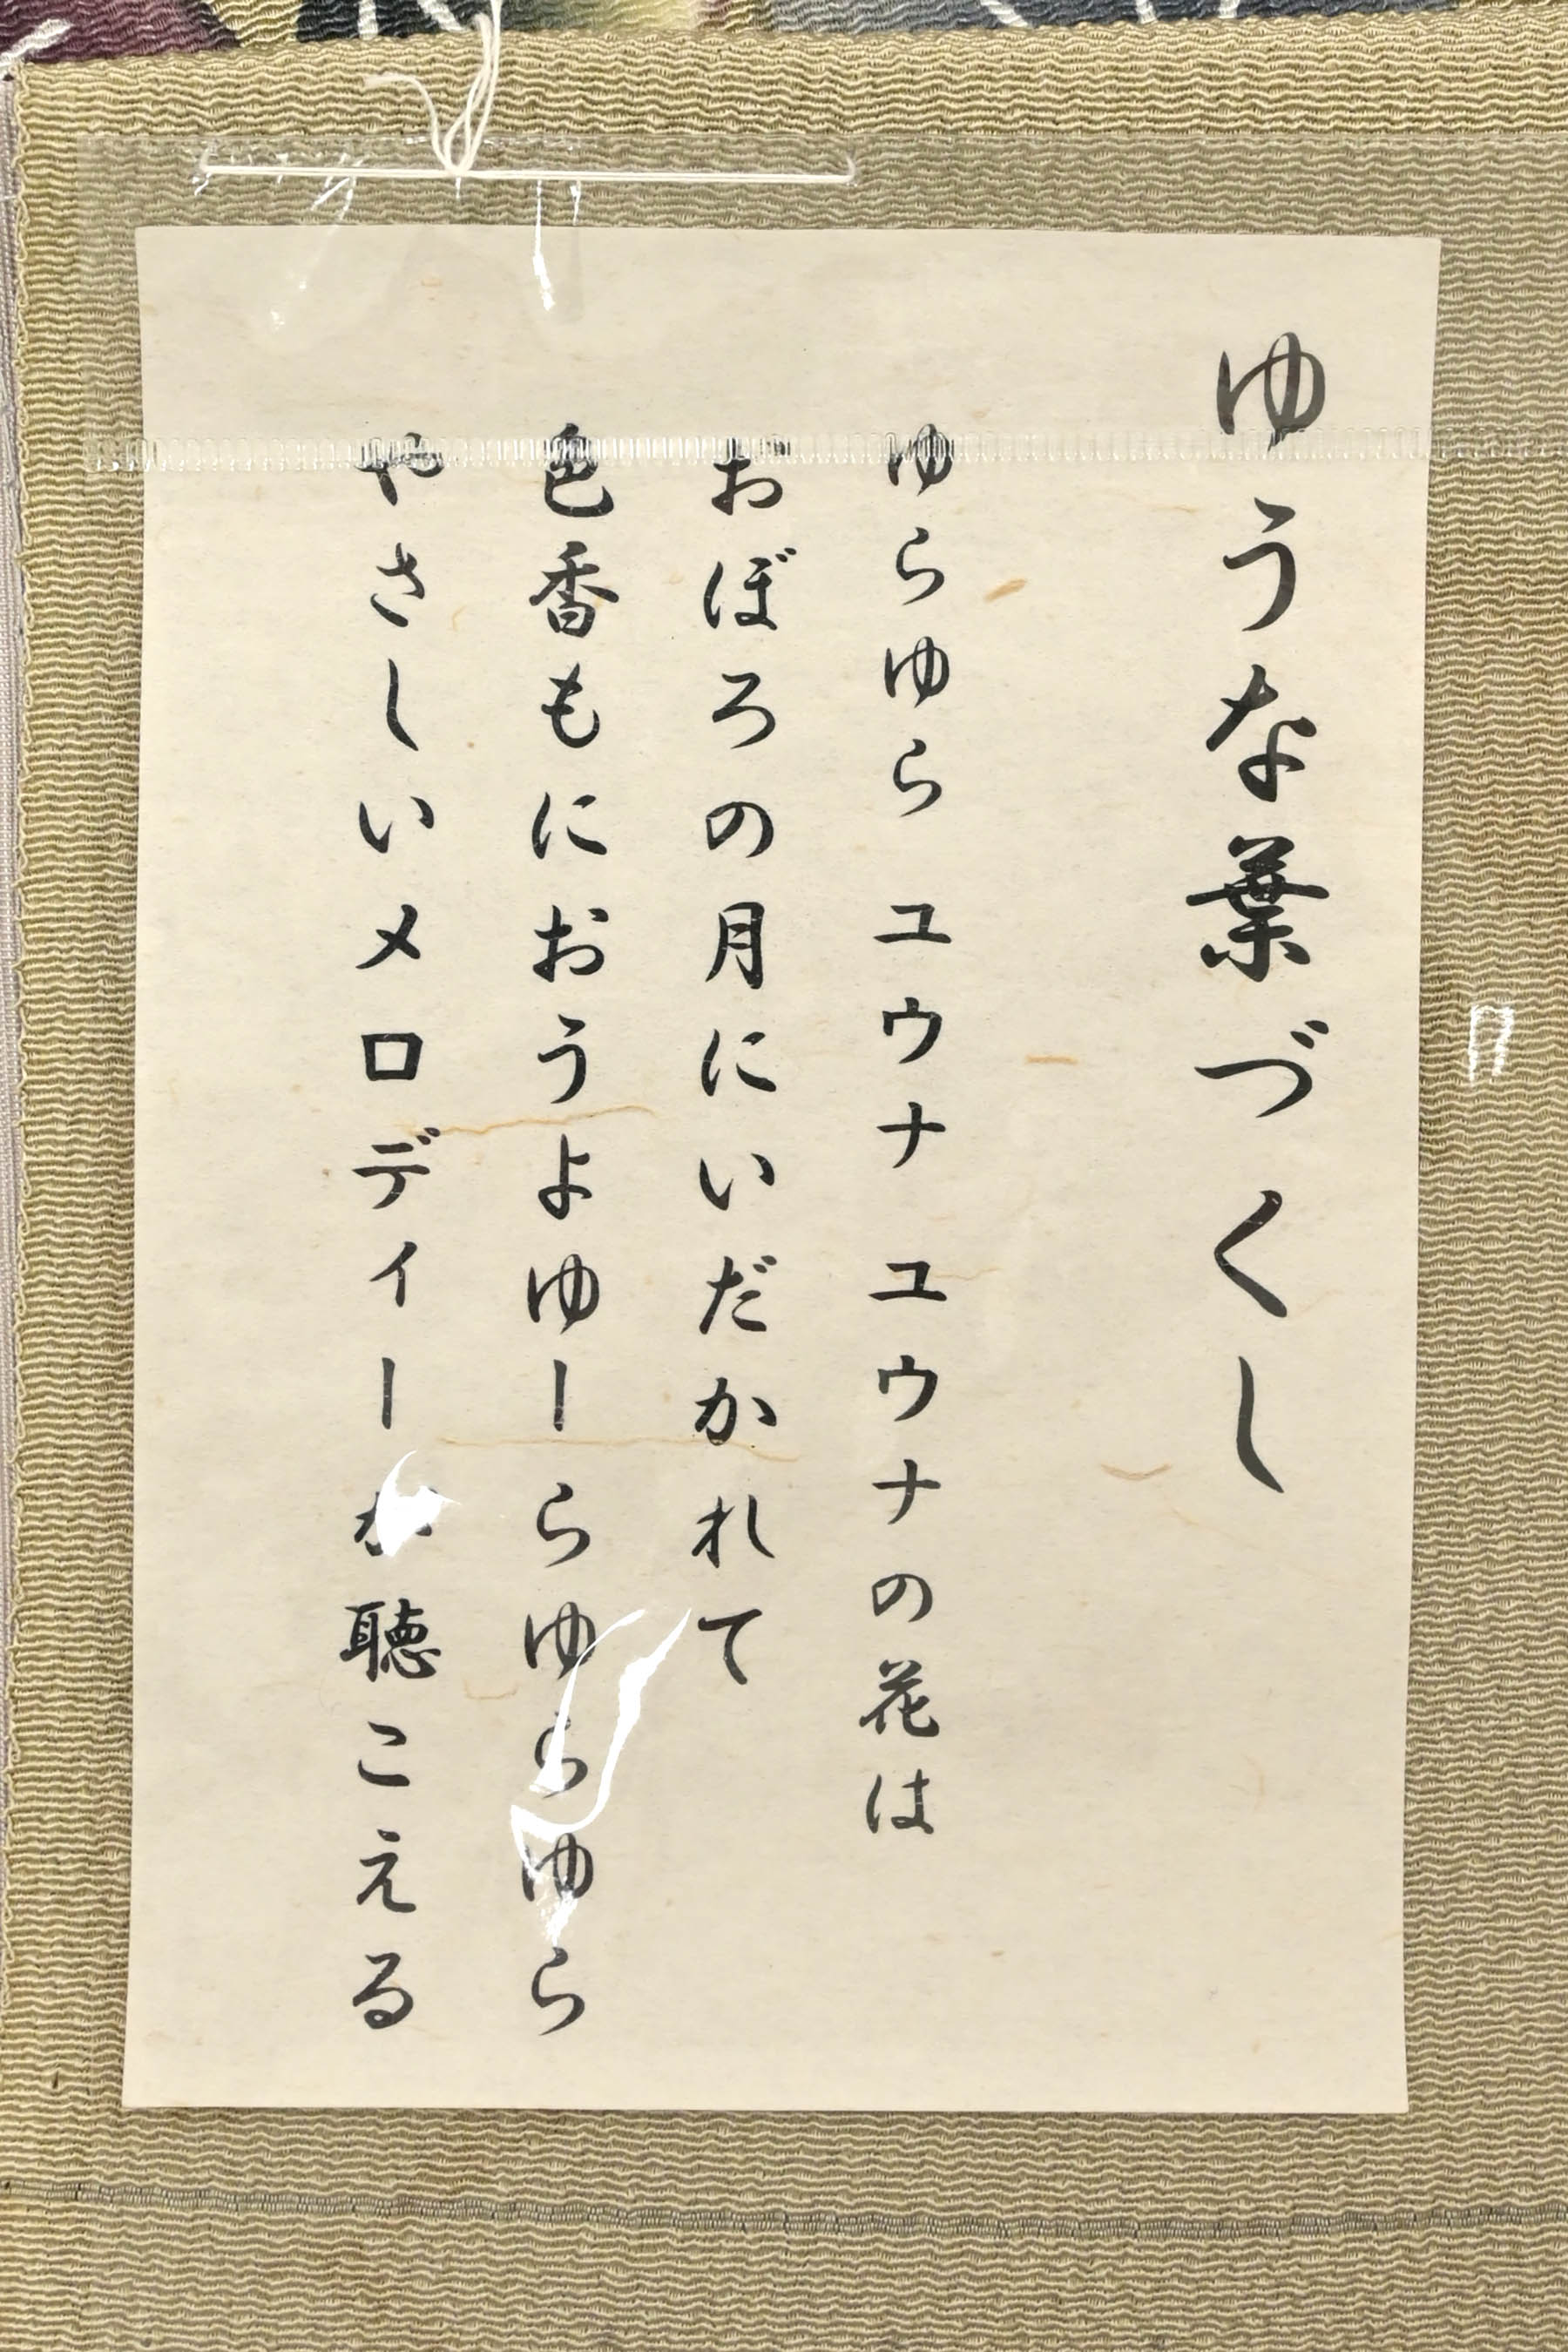 ゆうな葉づくし
ゆらゆら ユウナ ユウナの花は
おぼろの月にいだかれて
色香もにおうよゆーらゆらゆら
やさしいメロディーが聴こえる